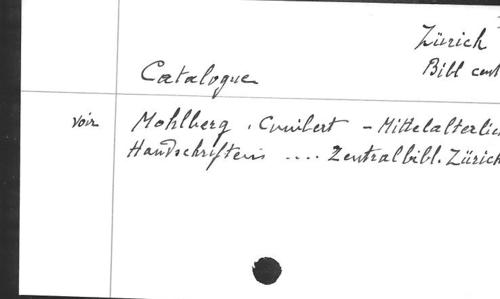 Zürich
Bibl cent
Catalogue
voir Mohlberg, Cunibert - Mittelalterlic
Handschriften .... Zentralbibl. Zürich